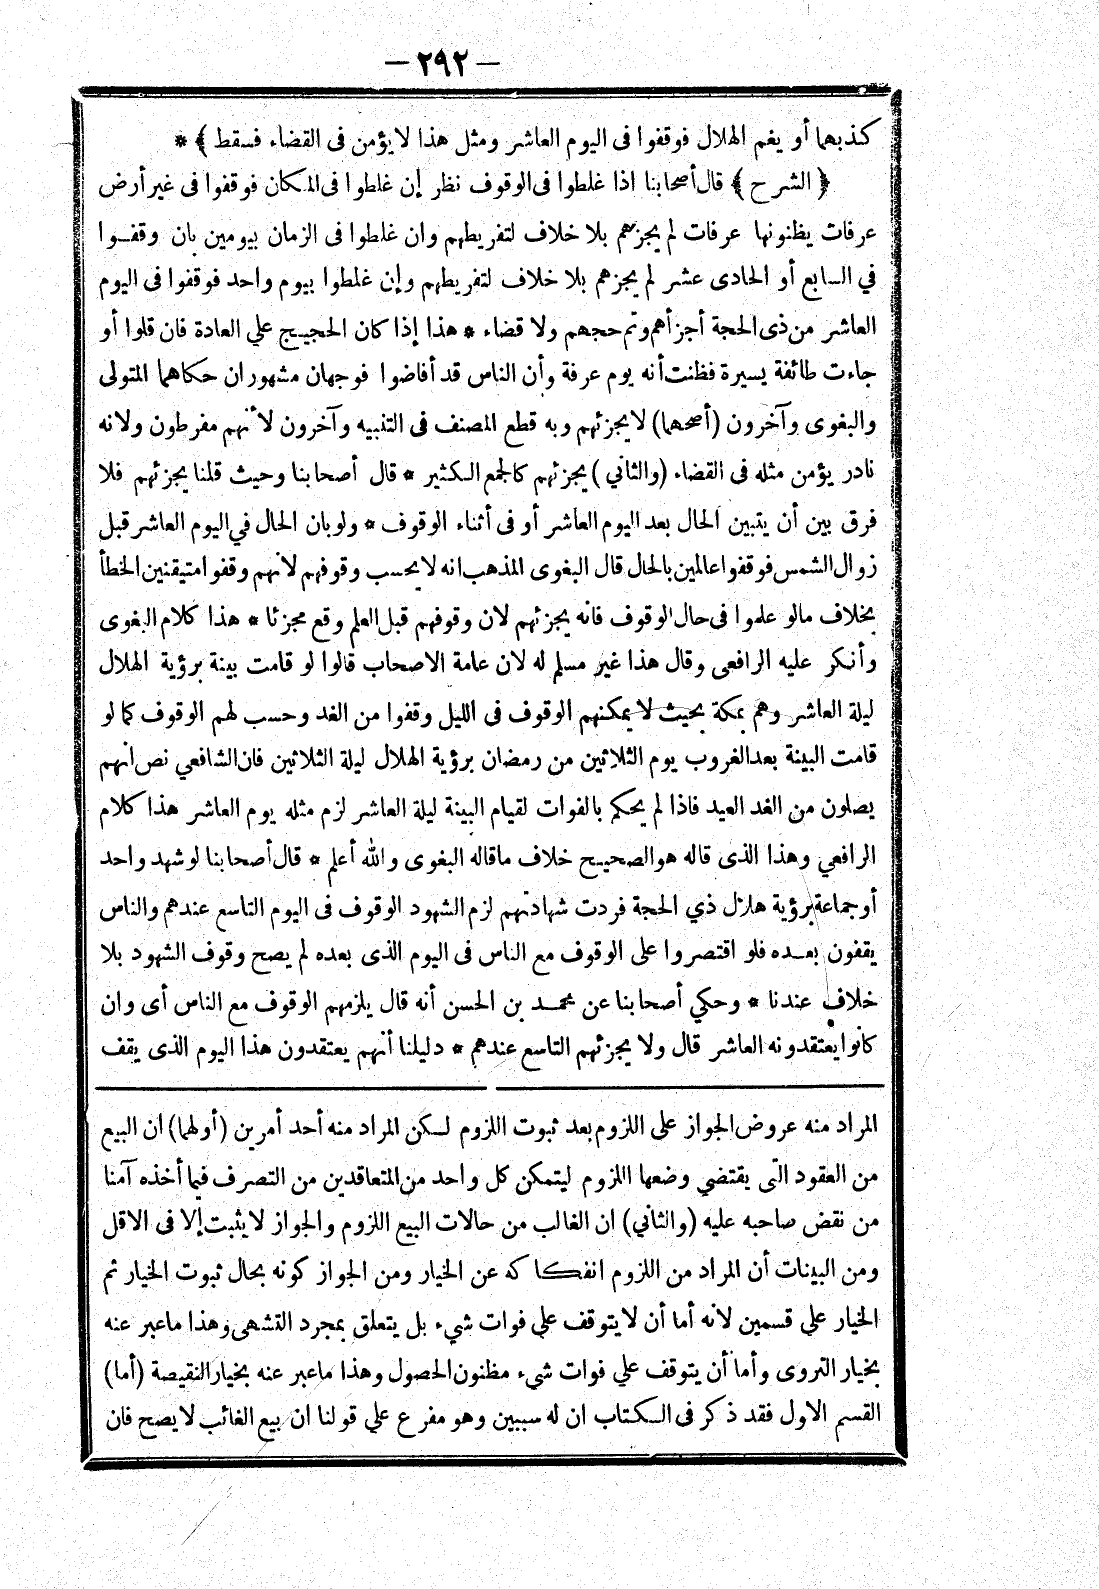 — ٢٩٢ —
كذبهما أو يغم الهلال فوقفوا فى اليوم العاشر ومثل هذا لا يؤمن فى القضاء فسقط ﴾ *
﴿ الشرح ﴾ قال أصحابنا اذا غلطوا فى الوقوف نظر إن غلطوا فى المكان فوقفوا فى غير أرض
عرفات يظنونها عرفات لم يجزهم بلا خلاف لتفريطهم وان غلطوا فى الزمان بيومين بان وقفـوا
في السابع أو الحادى عشر لم يجزهم بلا خلاف لتفريطهم وإن غلطوا بيوم واحد فوقفوا فى اليوم
العاشر من ذى الحجة أجزأهم وتم حجهم ولا قضاء * هذا إذا كان الحجيج علي العادة فان قلوا أو
جاءت طائفة يسيرة فظنت أنه يوم عرفة وأن الناس قد أفاضوا فوجهان مشهوران حكاهما المتولى
والبغوى وآخرون (أصحهما) لا يجزئهم وبه قطع المصنف فى التنبيه وآخرون لأنهم مفرطون ولانه
نادر يؤمن مثله فى القضاء (والثاني) يجزئهم كالجمع الكثير * قال أصحابنا وحيث قلنا يجزئهم فلا
فرق بين أن يتبين الحال بعد اليوم العاشر أو فى أثناء الوقوف * ولو بان الحال في اليوم العاشر قبل
زوال الشمس فوقفوا عالمين بالحال قال البغوى المذهب انه لا يحسب وقوفهم لانهم وقفوا متيقنين الخطأ
بخلاف مالو علموا فى حال الوقوف فانه يجزئهم لان وقوفهم قبل العلم وقع مجزئا * هذا كلام البغوى
وأنكر عليه الرافعى وقال هذا غير مسلم له لان عامة الاصحاب قالوا لو قامت بينة برؤية الهلال
ليلة العاشر وهم بمكة بحيث لا يمكنهم الوقوف فى الليل وقفوا من الغد وحسب لهم الوقوف كما لو
قامت البينة بعد الغروب يوم الثلاثين من رمضان برؤية الهلال ليلة الثلاثين فان الشافعي نص انهم
يصلون من الغد العيد فاذا لم يحكم بالفوات لقيام البينة ليلة العاشر لزم مثله يوم العاشر هذا كلام
الرافعي وهذا الذى قاله هو الصحيح خلاف ماقاله البغوى والله أعلم * قال أصحابنا لو شهد واحد
أو جماعة برؤية هلال ذي الحجة فردت شهادتهم لزم الشهود الوقوف فى اليوم التاسع عندهم والناس
يقفون بعـده فلو اقتصروا على الوقوف مع الناس فى اليوم الذى بعده لم يصح وقوف الشهود بلا
خلاف عندنا * وحكي أصحابنا عن محمـد بن الحسن أنه قال يلزمهم الوقوف مع الناس أى وان
كانوا يعتقدونه العاشر قال ولا يجزئهم التاسع عندهم * دليلنا أنهم يعتقدون هذا اليوم الذى يقف
المراد منه عروض الجواز على اللزوم بعد ثبوت اللزوم لـكن المراد منه أحد أمرين (أولهما) ان البيع
من العقود التى يقتضي وضعها اللزوم ليتمكن كل واحد من المتعاقدين من التصرف فيما أخذه آمنا
من نقض صاحبه عليه (والثاني) ان الغالب من حالات البيع اللزوم والجواز لا يثبت إلا فى الاقل
ومن البينات أن المراد من اللزوم انفكاكه عن الخيار ومن الجواز كونه بحال ثبوت الخيار ثم
الخيار علي قسمين لانه أما أن لا يتوقف علي فوات شيء بل يتعلق بمجرد التشهى وهذا ماعبر عنه
بخيار التروى وأما أن يتوقف علي فوات شيء مظنون الحصول وهذا ماعبر عنه بخيار النقيصة (أما)
القسم الاول فقد ذكر فى الـكتاب ان له سببين وهو مفرع علي قولنا ان بيع الغائب لا يصح فان